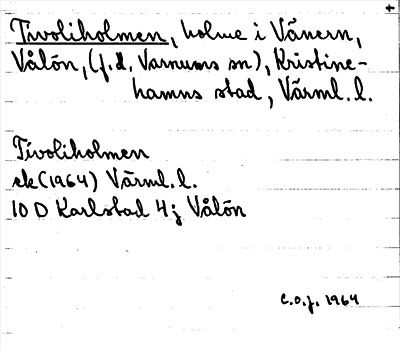 Tivoliholmen, holme i Vänern,
Vålön, (f.d. Varnums sn), Kristine-
hamns stad, Värml. l.
Tivoliholmen
ek (1964) Värml. l.
10 D Karlstad 4j Vålön
C.O.J. 1964